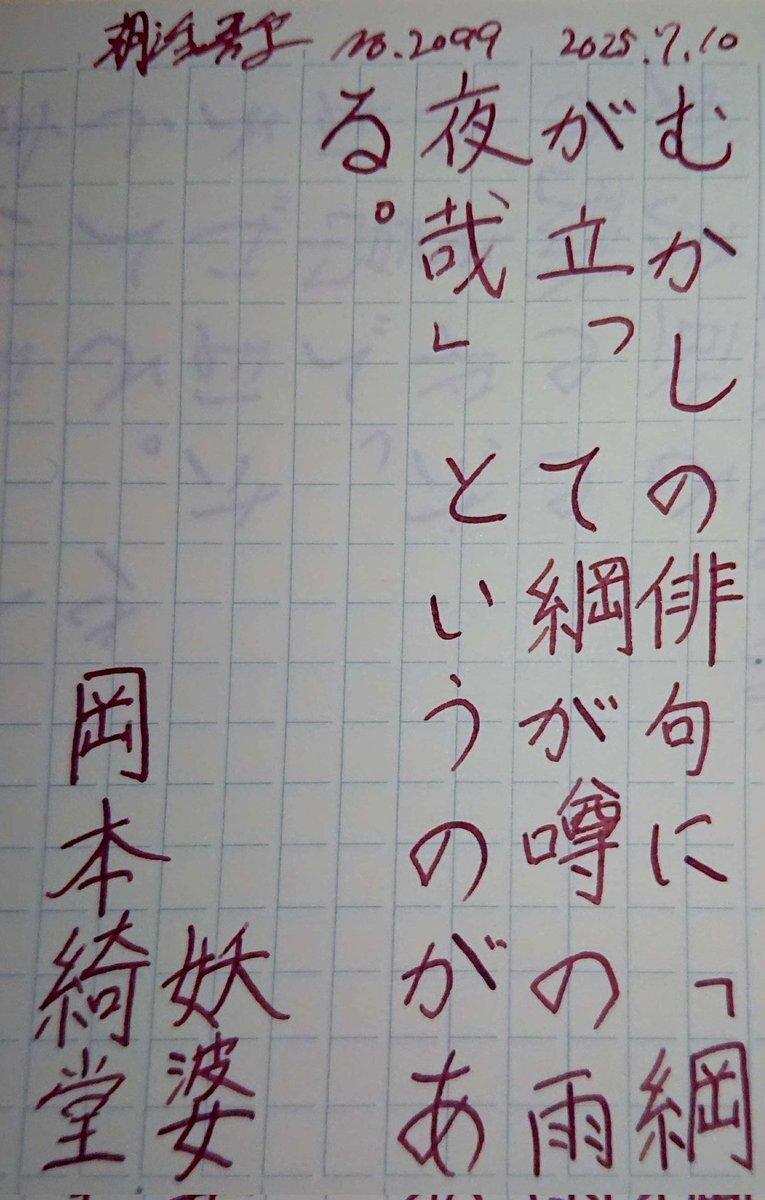 No.2099 2025.7.10
むかしの俳句に「綱
が立って綱が噂の雨
夜哉」というのがあ
る。
妖婆
岡本綺堂